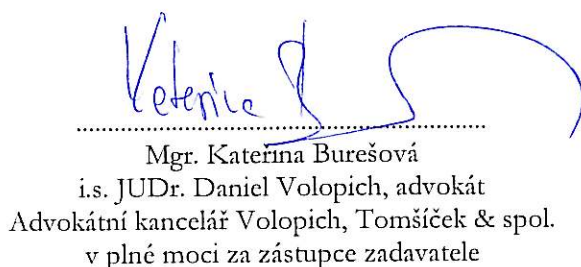 Kateřina B
........................................................................
Mgr. Kateřina Burešová
i.s. JUDr. Daniel Volopich, advokát
Advokátní kancelář Volopich, Tomšíček & spol.
v plné moci za zástupce zadavatele